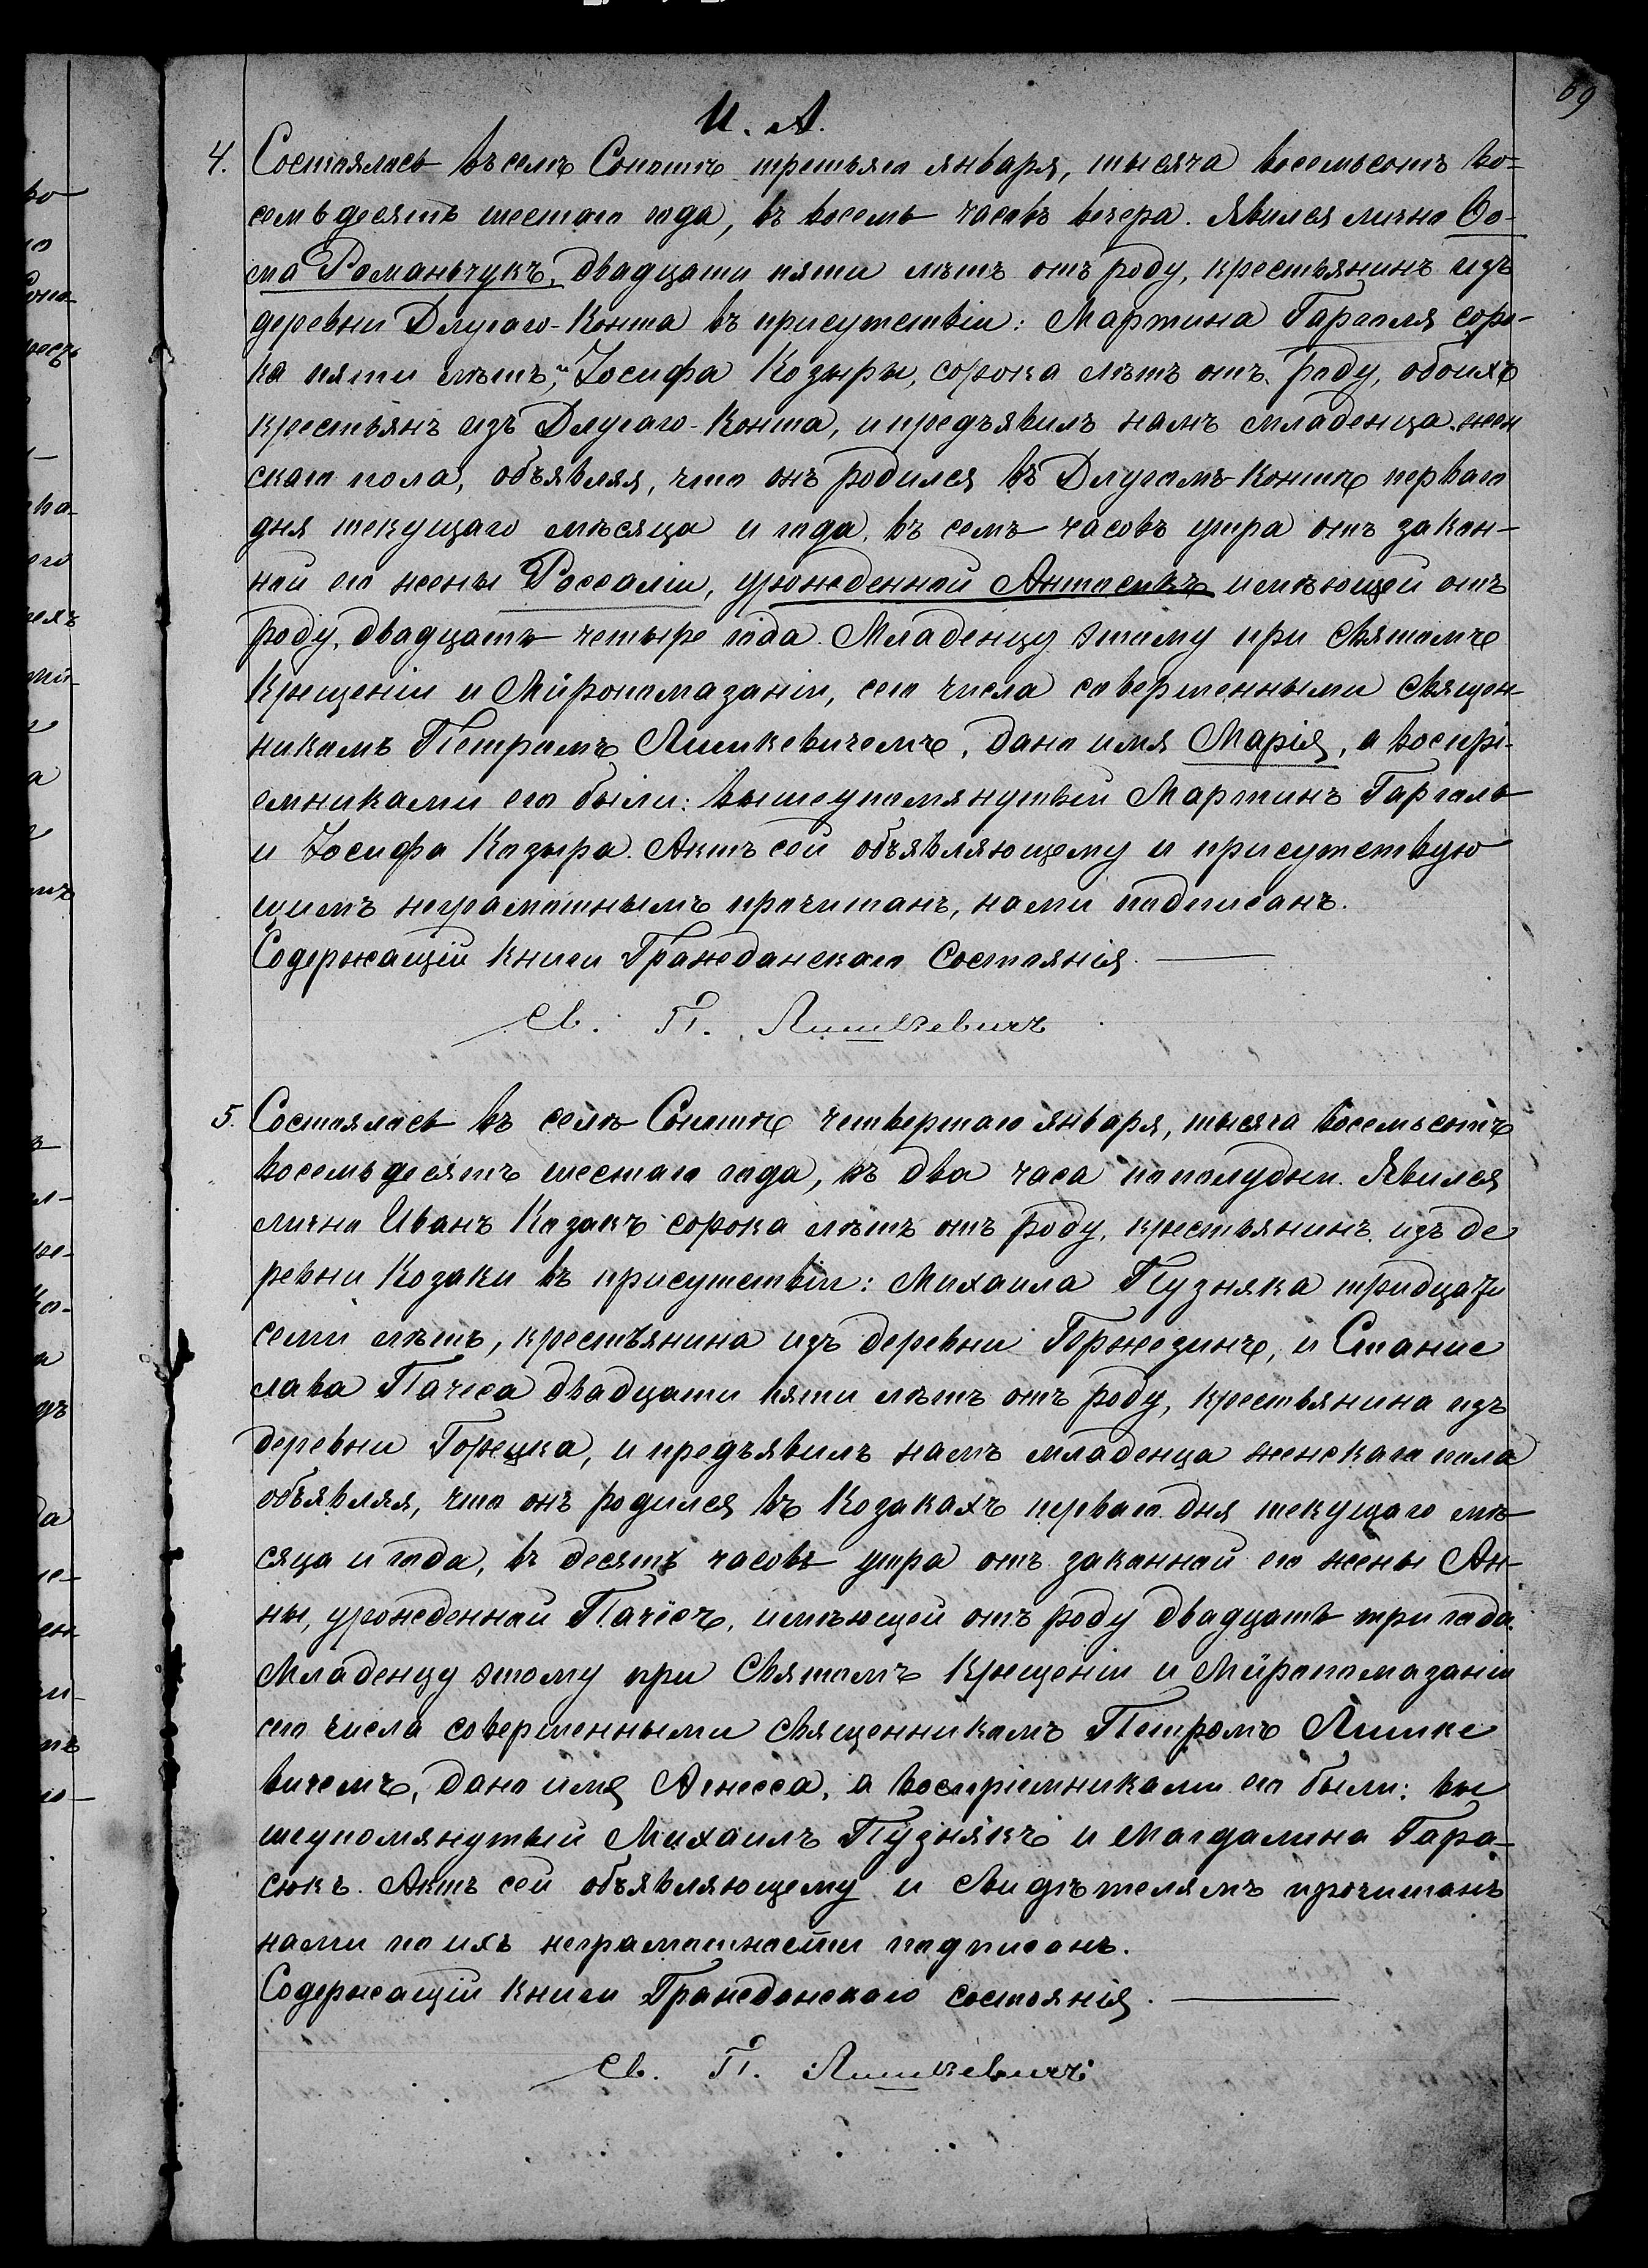 69
И. А.
4. Состоялось въ селѣ Сопотѣ третьяго января, тысяча восемьсотъ во-
семьдесятъ шестого года, въ восемь часовъ вечера. Явился лично Ѳо-
ма Романьчукъ, двадцати пяти лѣтъ отъ роду, крестьянинъ изъ
деревни Длугаго-Конта въ присутствіи: Мартина Гаргаля соро-
ка пяти лѣтъ, и Іосифа Козыры, сорока лѣтъ отъ роду, обоихъ
крестьянъ изъ Длугаго-Конта, и предъявилъ намъ младенца жен
скаго пола, объявляя, что онъ родился въ Длугомъ-Контѣ перваго
дня текущаго мѣсяца и года, въ семь часовъ утра отъ закон-
ной его жены Россаліи, урожденной имѣющей отъ
роду, двадцать четыре года. Младенцу этому при Святомъ
Крещеніи и Мѵропомазаніи, сего числа совершенными Священ-
никомъ Петромъ Лишкевичемъ, дано имя Марія, а воспрі-
емниками его были: вышеупомянутый Мартинъ Гаргаль
и Іосифа Козыра. Актъ сей объявляющему и присутствую
щимъ неграмотнымъ прочитанъ, нами подписанъ.
Содержащій книги Гражданскаго Состоянія.
Св. П. Лишкевичъ
5. Состоялось въ селѣ Сопотѣ четвертаго января, тысяча восемьсотъ
восемьдесятъ шестого года, въ два часа пополудни. Явился
лично Иванъ Козакъ сорока лѣтъ отъ роду, крестьянинъ изъ де
ревни Козаки въ присутствіи: Михаила Пузняка тридцати
семи лѣтъ, крестьянина изъ деревни Горжезинъ, и Станис
лава Пачоса двадцати пяти лѣтъ отъ роду, крестьянина изъ
деревни Горецка, и предъявилъ намъ младенца женскаго пола
объявляя, что онъ родился въ Козакахъ перваго дня текущаго мѣ
сяца и года, въ десять часовъ утра отъ законной его жены Ан-
ны, урожденной Пачёсъ, имѣющей отъ роду двадцать три года.
Младенцу этому при Святомъ Крещеніи и Мѵропомазаніи
сего числа совершенными Священникомъ Петромъ Лишке
вичемъ, дано имя Агнесса, а воспріемниками его были: вы
шеупомянутый Михаилъ Пузнякъ и Магдалина Гара-
сюкъ. Актъ сей объявляющему и свидѣтелямъ прочитанъ
нами по ихъ неграмотности подписанъ.
Содержащій книги Гражданскаго состоянія.
Св. П. Лишкевичъ